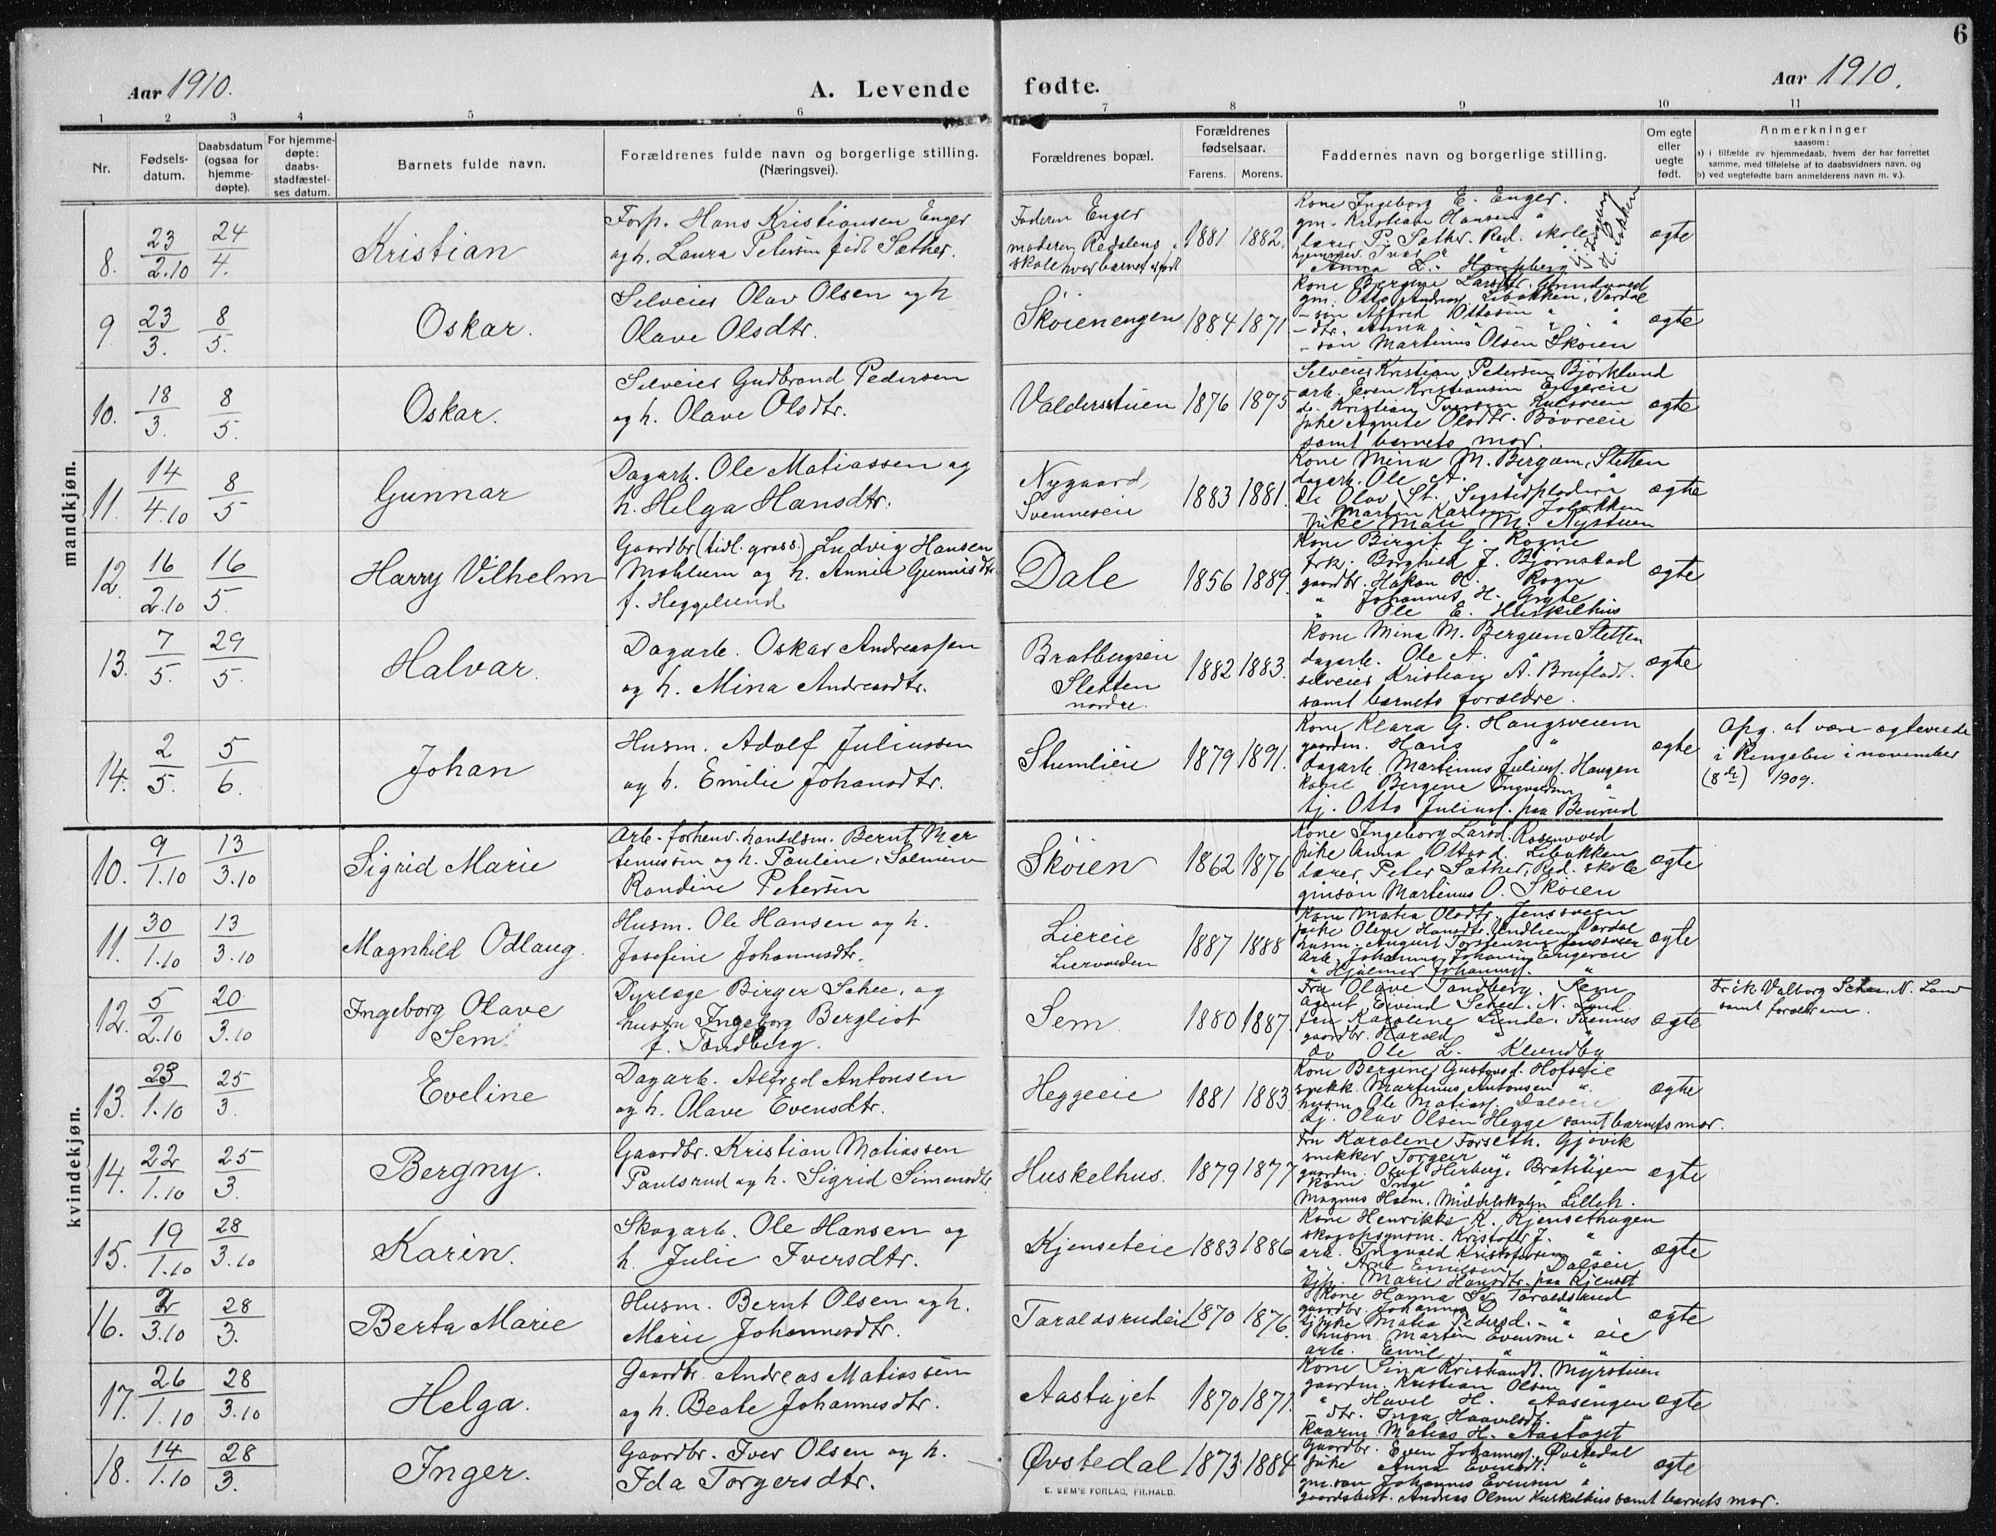 6
Aar 1910.
A. Levende fødte.
Aar 1910.
1 2 3 4 5 6 7 8 9 10 11
Nr.
Fødsels-
datum.
Daabsdatum
(ogsaa for
hjemme-
døpte).
For hjemme-
døpte:
daabs-
stadfæstel-
ses datum.
Barnets fulde navn.
Forældrenes fulde navn og borgerlige stilling.
(Næringsvei).
Forældrenes bopæl.
Forældrenes
fødselsaar.
Farens. Morens.
Faddernes navn og borgerlige stilling.
Om egte
eller
uegte
født.
Anmerkninger
saasom:
a) i tilfælde av hjemmedaab, hvem der har forrettet
samme, med tilføielse af to daabsvidners navn, og
b) ved uegtefødte barn anmelderens navn m. v.).
mandkjøn.
8. 23/2.10 24/4. Kristian
Forp. Hans Kristiansen Enger
og h. Laura Petersen født Sæther.
Faderen Enger
moderen Redalens
skole hvor barnet er født
1881 1882. ægte
Kone Ingeborg E. Enger.
gm. Kristian Hansen "
lærer P. Sæther. Red. skole
9 23/3. 8/5. Oskar.
Selveier Olav Olsen og h
Olave Olsdtr.
Skøienengen 1884 1871 ægte
gm. Otto Andreas. Libakken, Vardal
- søn Alfred Ottosen " "
- dtr. Anna " " "
- søn Martinius Olsen Skøien
10. 18/3. 8/5. Oskar.
Selveier Gudbrand Pedersen
og h. Olave Olsdtr.
Valdersstuen 1876 1875 ægte
Selveier Kristian Petersen Bjørklund
arb. Even Kristiansen Engereie
do. Kristian Iversen
pike Agnete Olsdtr. Bøvreeie
samt barnets mor.
11. 14/4.10 8/5 Gunnar
Dagarb. Ole Matiassen og
h. Helga Hansdtr.
Nygaard
Svenneseie
1883 1881. ægte
Kone Mina M. Bergum, Sletten
dagarb. Ole A. " "
Martin Karlsen
pike Mari M. Nystuen
12. 16/2.10 16/5. Harry Vilhelm
Gaardbr. (tidl. gross.) Ludvig Hansen
Mohlum og h. Annie Gunnisdtr
f. Heggelund
Dale 1856 1889. ægte
Kone Birgit G. Rogne
frk. Borghild J. Bjørnstad
gaardbr. Håkon H. Rogne
" Johannes H. Grythe
" Ole E. Huskelhus
13. 7/5. 29/5. Halvar.
Dagarb. Oskar Andreassen
og h. Mina Andreasdtr.
Bratbergseie
Sletten
nordre.
1882 1883. ægte
Kone Mina M. Bergum Sletten
dagarb. Ole A. " "
selveier Kristian A. Bruflodt.
samt barnets forældre.
14. 2/5. 5/6. Johan
Husm. Adolf Juliussen
og h. Emilie Johansdtr.
Stumlieie 1879 1891. ægte
Kone Klara G. Haugsveien
gaardm. Hans "
dagarb. Martinus Juliuss. Haugen
kone Bergine Ingvaldsen "
tj. Otto Juliuss. paa Benrud
Opg. at være egteviede
i Ringebu i november
(8de) 1909.
kvindekjøn.
10. 9/1.10 13/3.10 Sigrid Marie
Arb. forhenv. handelsm. Bernt Mar
tinussen og h. Pauline Salmine
Randine Petersen
Skøien 1862 1876 ægte
Kone Ingeborg Larsd. Rosenvoed
pike Anna Ottosd. Libakken
Lærer Peter Sæther, Red. skole
gmsøn Martinus O. Skøien
11. 30/1.10 13/3.10 Magnhild Odlaug.
Husm. Ole Hansen og h.
Josefine Johannesdtr.
Liereie
Liersveden
1887 1888 ægte
Kone Matea Olsdtr. Jenssveen
pike Oline Hansdtr. Undlien, Vardal
husm. August Torstensen Jenssveen
arb. Johannes Johansen Engereie
" Hjalmar Johanness. "
12. 5/2.10 20/3.10 Ingeborg Olave
Sem
Dyrlæge Birger Schee, og
hustru Ingeborg Bergliot
f. Tandberg.
Sem 1880 1887. ægte
Fru Olave Tandberg. Sem
agent. Eivind Schee. N. Land
fru Karolene Lunde. Svennes
gaardbr. Harald " "
do Ole L. Klundby
Frk Valborg Schee. N. Land
samt forældrene.
13. 23/1.10 25/3. Eveline
Dagarb. Alfred Antonsen
og h. Olave Evensdtr.
Heggeeie 1881 1883 ægte
Kone Bergine Gustavsd. Hofseie
snekk. Martinus Antonsen "
husm. Ole Matiass. Dalseie
tj. Olav Olsen Hegge samt barnets mor.
14. 22/1.10 25/3. Bergny.
Gaardbr. Kristian Matiassen
Paulsrud og h. Sigrid Simensdtr.
Huskelhus. 1879 1877 ægte
Fru Karolene Forseth. Gjøvik
snekker Torgeir " "
gaardm. Oluf Herberg. Bratstigen
kone Inge " "
Magnus Holm, Middelskolen Lilleh.
15. 19/1.10 28/3.10 Karen.
Skogarb. Ole Hansen og
h. Julie Iversdtr.
Kjenseteie 1883 1886 ægte
Kone Henrikke K. Kjensethagen
skogopsynsm. Kristoffer J. "
arb. Ingvald Kristoffersen "
" Arne Emilsen Dalseie
tjp. Marie Hansdtr. paa Kjenset
16. 2/3.10 28/3. Berta Marie
Husm. Bernt Olsen og h.
Marie Johannesdtr.
Taraldsrudeie 1870 1876. ægte
Kone Hanna Sv. Taraldsrud
gaardbr. Johannes D. "
tjpike Matea Pedersd. "
husm. Martin Evensen " eie
arb. Emil " "
17. 26/1.10 28/3.10 Helga.
Gaardbr. Andreas Matiassen
og h. Beate Johannesdtr.
Aastajet 1870 1871. ægte
Kone Sina Kristiansdt. Myrstuen
gaardm. Kristian Olsen "
" Havel H. Aasengen
- dtr. Inga Haavelsdt. "
Kaarm. Matias H. Aastajet
18. 14/1.10 28/3. Inger.
Gaardbr. Iver Olsen og h.
Ida Torgersdtr.
Øvstedal 1873 1884 ægte
Gaardbr. Even Johanness. Øvstedal
pike Anna Evensdt. "
gm. søn Johannes Evensen "
gaardsbest. Andreas Olsen Huskelhus samt barnets mor.
E. SEM'S FORLAG, FR.HALD.